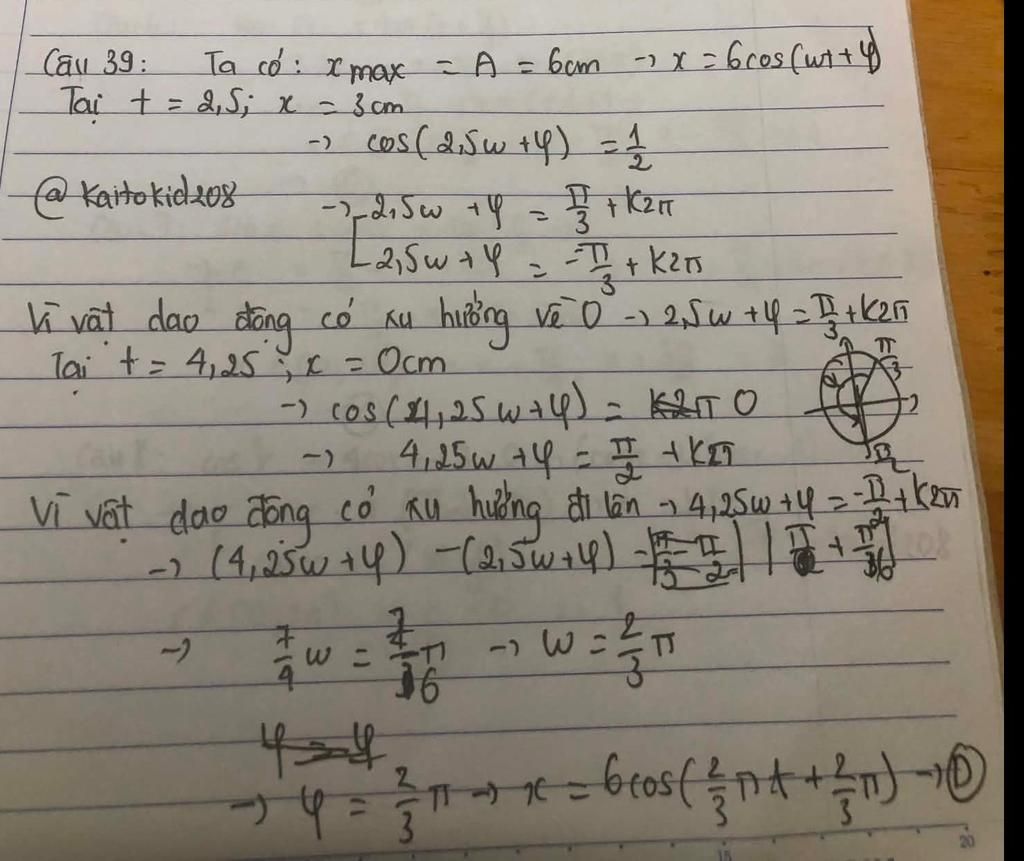 Câu 39: Ta có: xmax = A = 6cm → x = 6cos(ωt + φ)
Tại t = 2,5; x = 3cm
→ cos(2,5ω + φ) = 1/2
@Kaitokid208
→ [2,5ω + φ = π/3 + K2π
[2,5ω + φ = -π/3 + K2π
Vì vật dao động có xu hướng về O → 2,5ω + φ = π/3 + K2π
π/3
Tại t = 4,25; x = 0cm
→ cos(4,25ω + φ) = 0
→ 4,25ω + φ = π/2 + Kπ
Vì vật dao động có xu hướng đi lên → 4,25ω + φ = -π/2 + K2π
→ (4,25ω + φ) - (2,5ω + φ)
→ 7/4 ω = 7/6 π → ω = 2/3 π
→ φ = 2/3 π → x = 6cos(2/3 πt + 2/3 π) → D
15
20